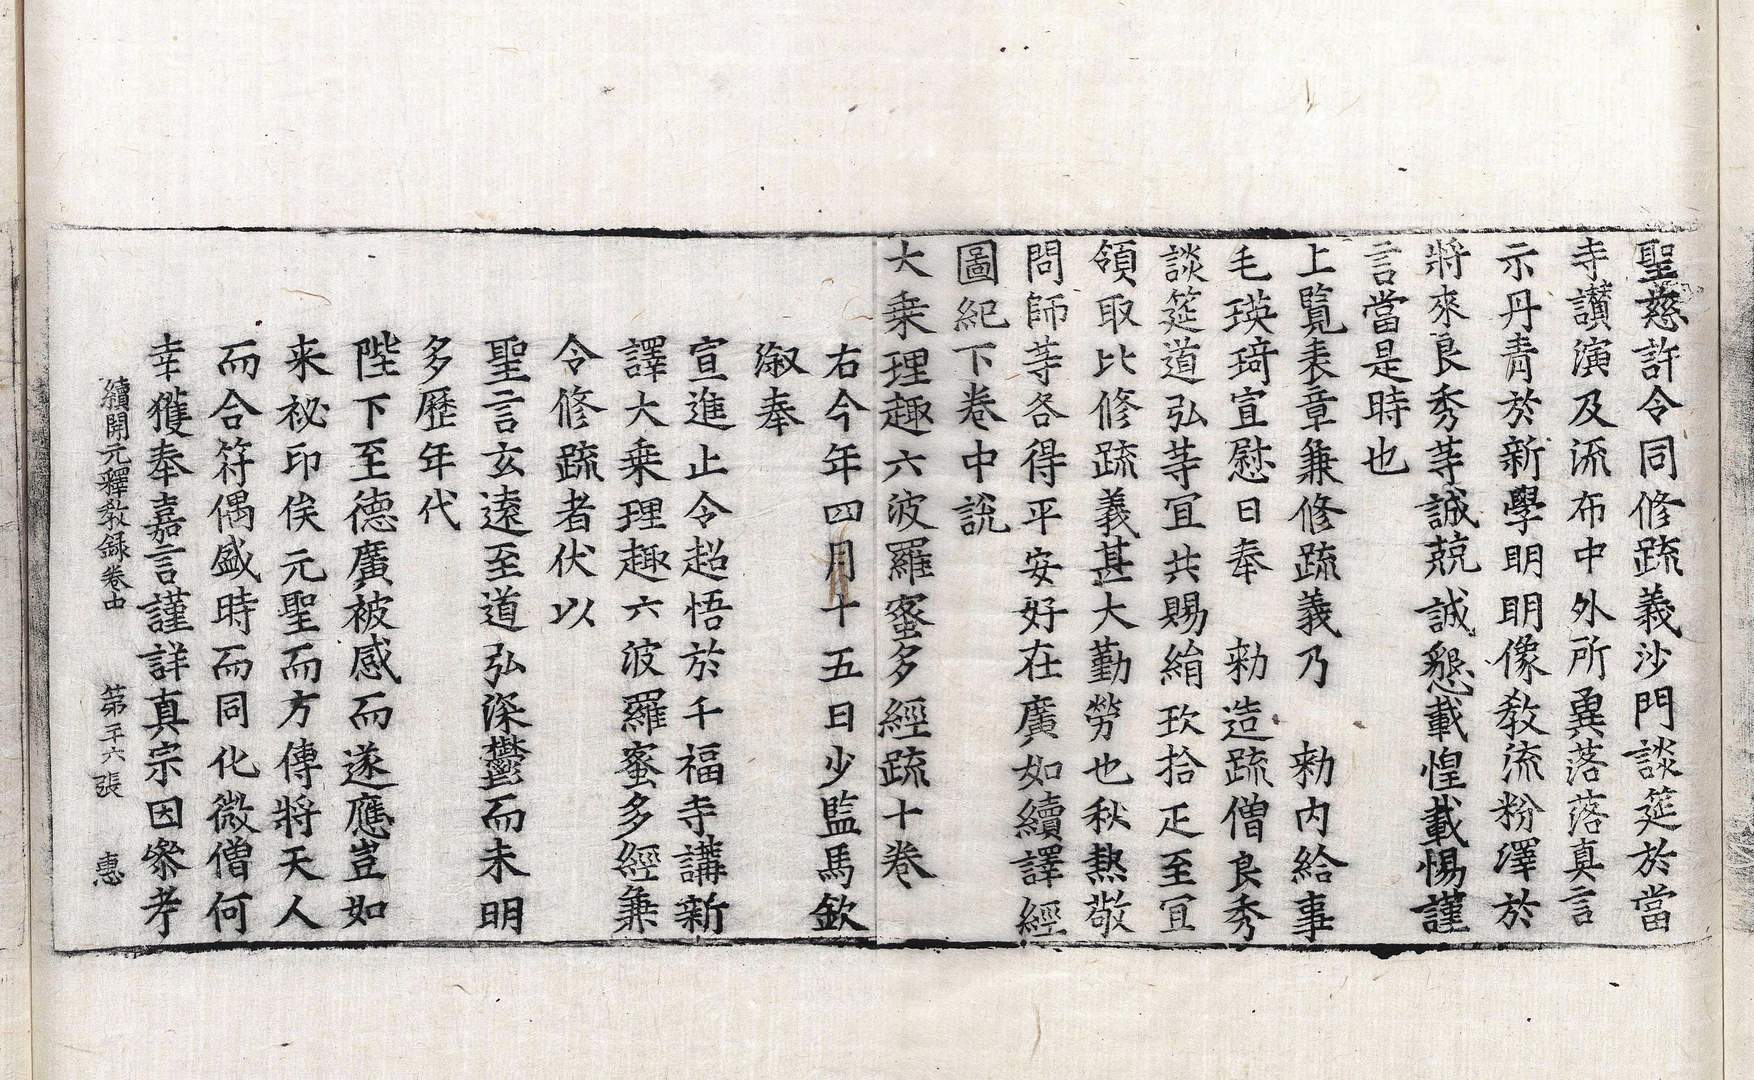 聖慈許令同修䟽義沙門談筵於當
寺讚演及流布中外所冀落落真言
示丹青於新學明明像教流粉澤於
將來良秀䓁誠兢誠懇載惶載惕謹
言當是時也
上覽表章兼修䟽義乃 勑內給事
毛瑛琦宣慰日奉 勑造䟽僧良秀
談筵道弘䓁冝共賜絹玖拾疋至冝
領取比修䟽義甚大勤勞也秋熱敬
問師䓁各得平安好在廣如續譯經
圖紀下卷中說
大乗理趣六波羅蜜多經䟽十卷
右今年四月十五日少監馬欽
溆奉
宣進止令超悟於千福寺講新
譯大乗理趣六波羅蜜多經兼
令修䟽者伏以
聖言玄遠至道弘深鬱而未明
多歷年代
陛下至德廣被感而遂應豈如
来祕印俟元聖而方傳將天人
而合符偶盛時而同化微僧何
幸獲奉嘉言謹詳真宗因叅考
續開元釋教錄卷中 第二十六張 惠